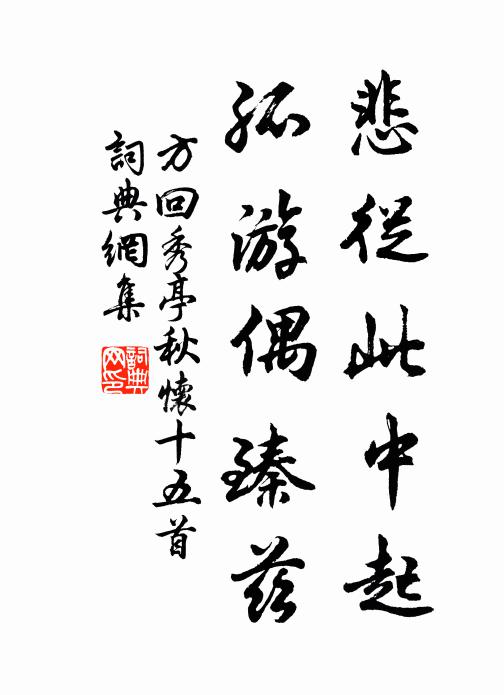 悲從此中起
孤游偶臻茲
方回秀亭秋懷十五首
詞典網集
詞典
网印